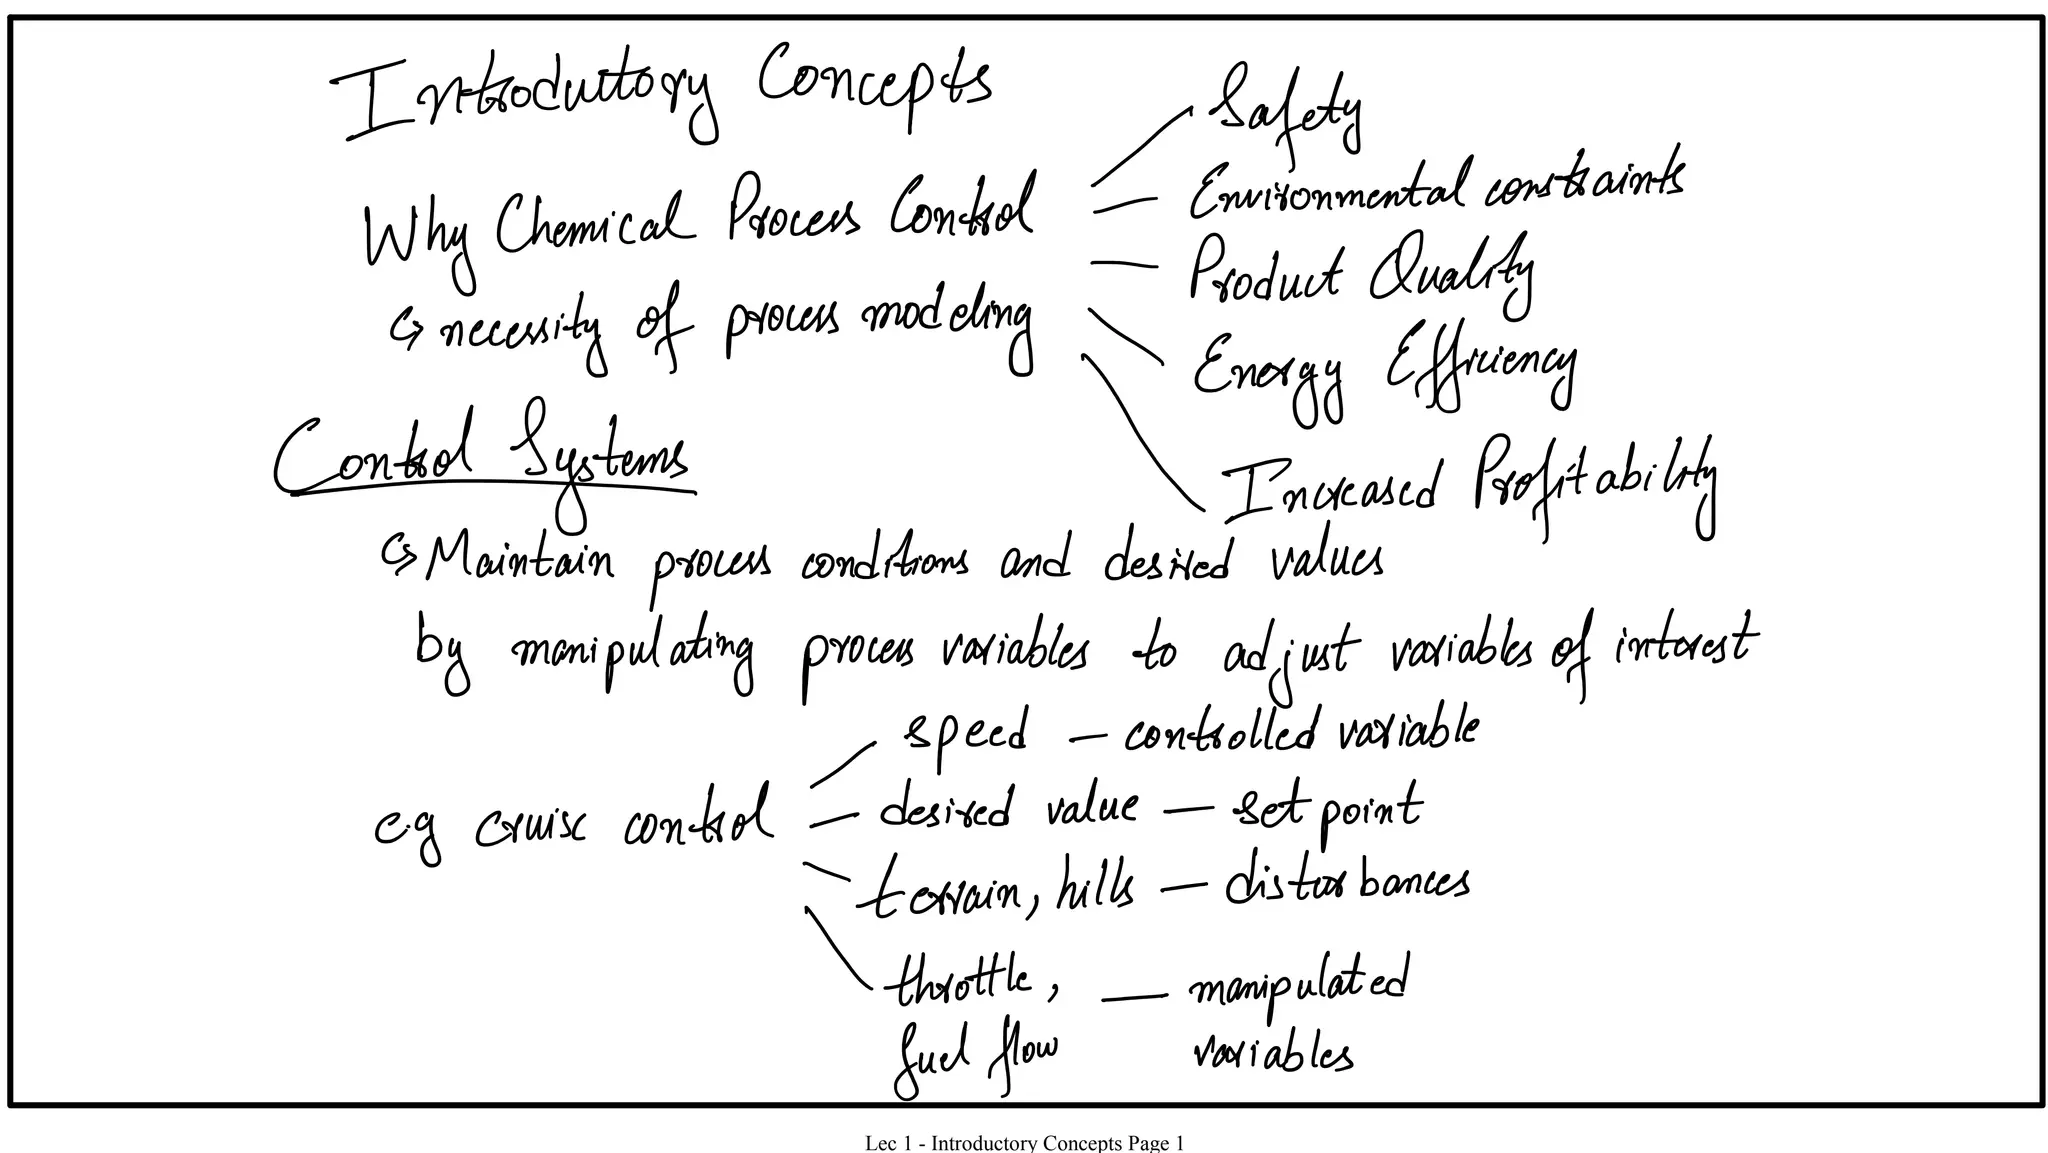 Introductory Concepts
Why Chemical Process Control
↳ necessity of process modeling
— Safety
— Environmental constraints
— Product Quality
Energy Efficiency
Increased Profitability
Control Systems
↳ Maintain process conditions and desired values
by manipulating process variables to adjust variables of interest
e.g cruise control
speed — controlled variable
— desired value — set point
terrain, hills — disturbances
throttle, — manipulated
fuel flow variables
Lec 1 - Introductory Concepts Page 1